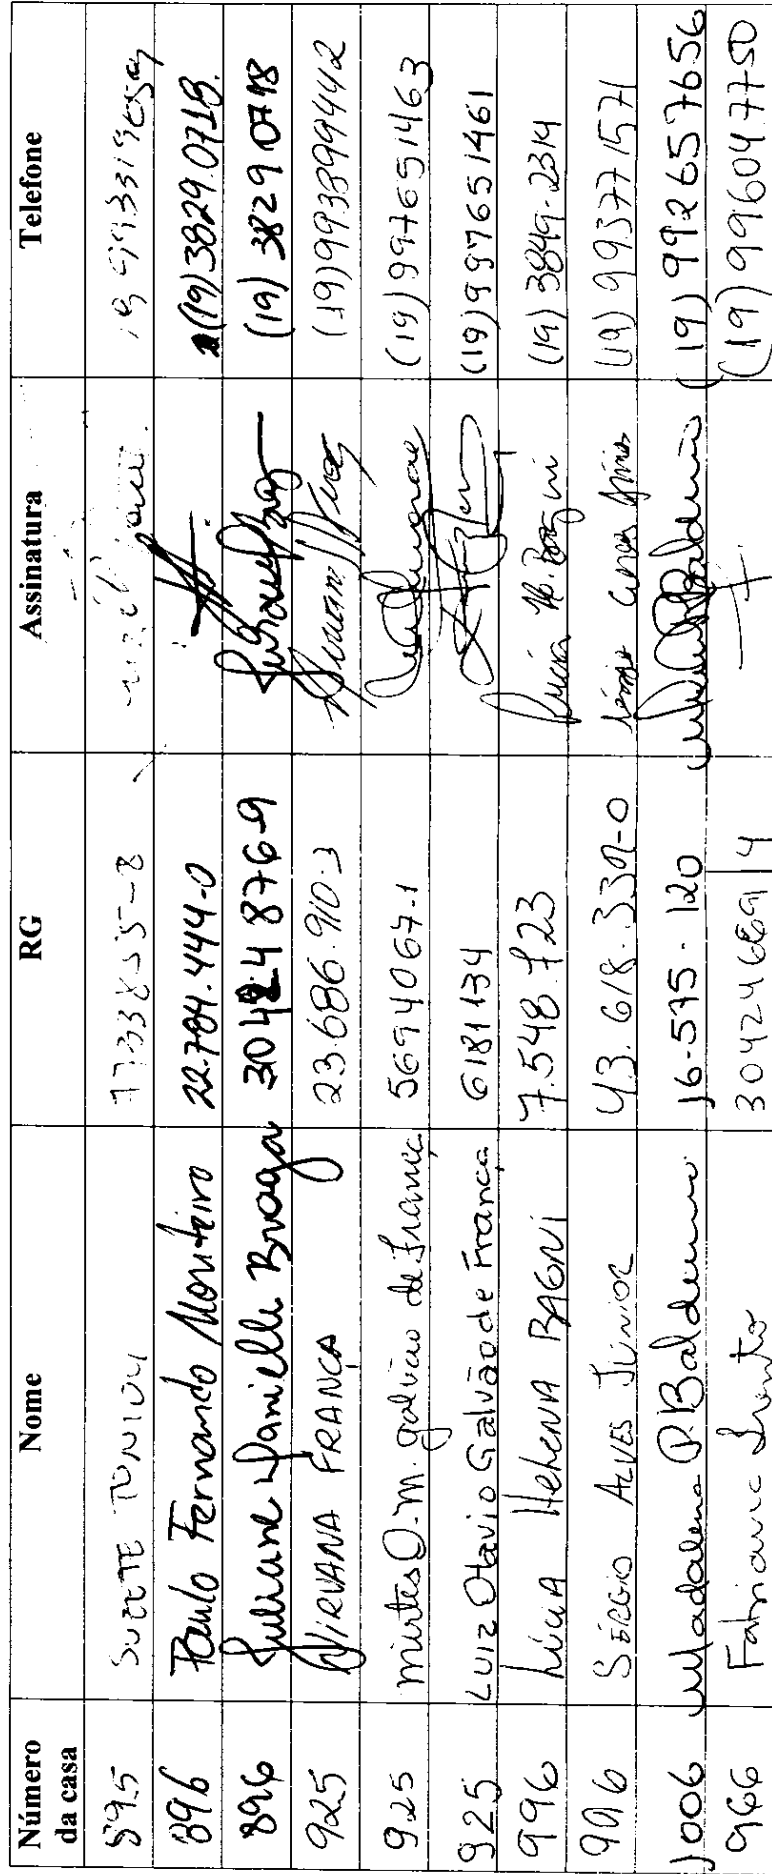 Número da casa | Nome | RG | Assinatura | Telefone
895 | SUZETE TONIOLI | 
896 | Paulo Fernando Monteiro | 22.784.444-0 | | (19) 3829.0718.
896 | Juliane Danielle Braga | 30424876-9 | | (19) 3829 0718
925 | NIRVANA FRANCA | 23.686.910-3 | | (19) 993899442
925 | Mirtes O. M. galvão de França | 5694067-1 | | (19) 997651463
925 | LUIZ Otavio Galvão de Franca | 6181134 | | (19) 997651461
996 | Lúcia Helena BAGNI | 7.548.723 | Lucia H. Bagni | (19) 3849-2314
996 | SÉRGIO ALVES JÚNIOR | 43.618.339-0 | | (19) 993771571
1006 | Madalena P. Balduino | 16-575-120 | | (19) 992657656
966 | Fabiana | | | (19) 996047750